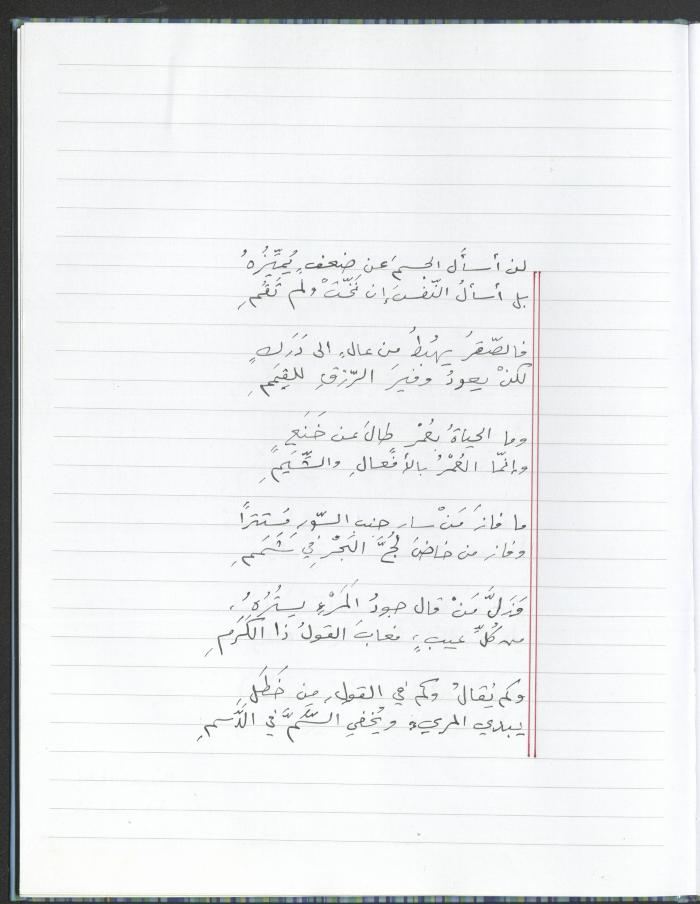 لن أسأل الجسمَ عن ضعفٍ يُميِّزُهُ
بل أسألُ النّفسَ إن نَخَّتْ ولم تَقُمِ
فالصّقرُ يهبُطُ من عالٍ الى دَرَكٍ
لكنْ يعودُ وفيرَ الرّزقِ للقِمَمِ
وما الحياةُ بعُمْرٍ طالَ عن خَنَعٍ
وإنّما العُمْرُ بالأفعالِ والشِّيَمِ
ما فازَ مَنْ سار جنب السّورِ مستترًا
وفاز من خاضَ لُجَّ البَحْرِ في شَمَمِ
وَزَلَّ مَنْ قال جودُ المَرْءِ يستُرُهُ،
من كُلِّ عيبٍ، فعابَ القولُ ذا الكَرَمِ
وكم يُقالُ وكم في القولِ مِن خَطَلٍ
يبدي المريءَ ويُخفي السُّمَّ في الدَّسمِ